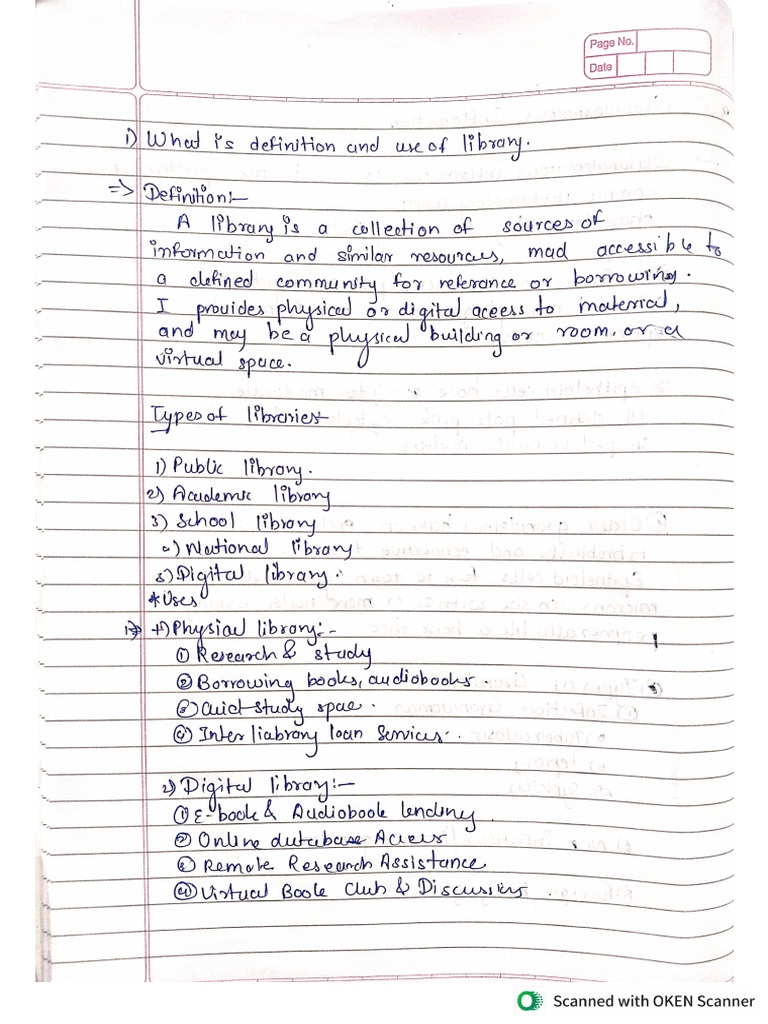 Page No.
Date
i) What is definition and use of library.
=> Definition:-
A library is a collection of sources of
information and similar resources, mad accessible to
a defined community for referance or borrowing.
I provides physical or digital aceess to material,
and may be a physical building or room. or a
virtual space.
Types of libraries-
1) Public library.
2) Academic library
3) School library
a) National library
5) Digital library.
*Uses
1) Physial library:-
① Research & study
② Borrowing books, audiobooks.
③ Quiet study spae.
④ Inter liabrary loan Services.
2) Digital library:-
① E-book & Audiobook lending
② Online database Access
③ Remote Research Assistance
④ Virtual Book Club & Discussion.
Scanned with OKEN Scanner